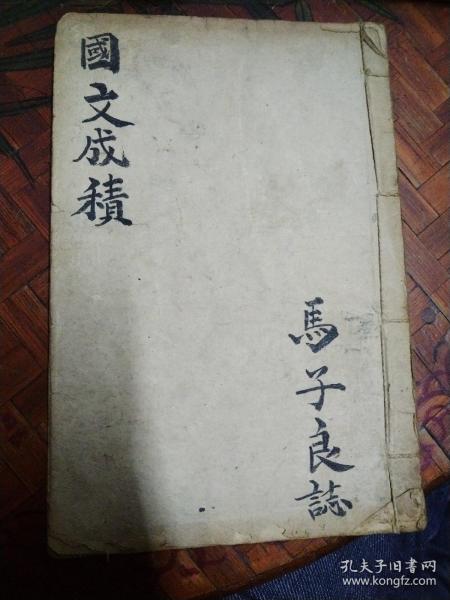 國文成積
馬子良誌
孔夫子旧书网
www.kongfz.com